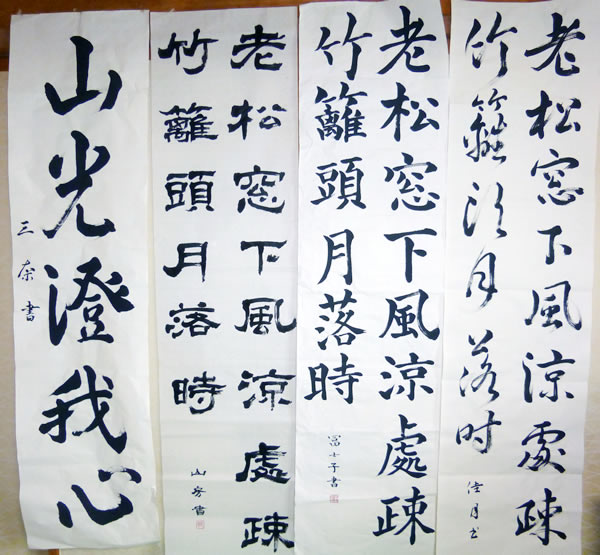 老松窓下風涼處疎
竹籬頭月落時
月书
老松窓下風涼處疎
竹籬頭月落時
冨士子書
老松窓下風涼處疎
竹籬頭月落時
山房書
山光澄我心
三 書